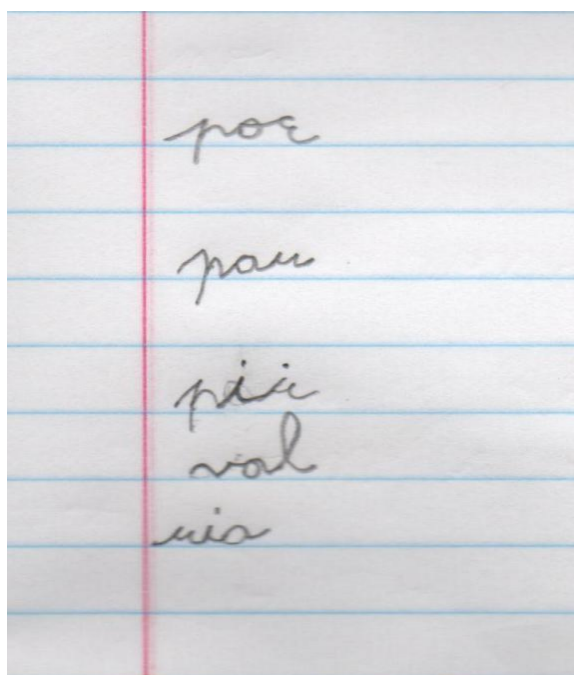 poe
pau
pii
val
uia